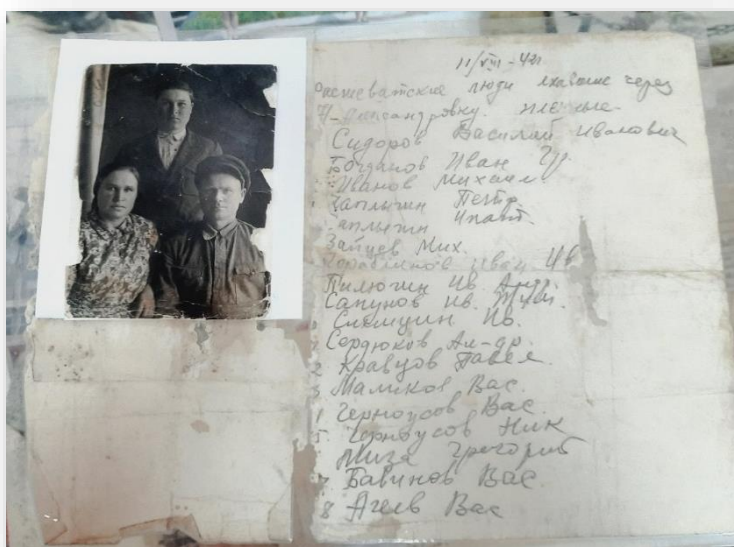 11/VIII-42г
люди ехавшие через
Н-Александровку. пленные
Сидоров Василий Иванович
Богданов Иван Гр.
Иванов Михаил
Каплыгин Петр.
Каплыгин Ипат
Зайцев Мих.
Иван Ив
Пилюгин Ив Андр
Сапунов Ив.
Ив.
Сердюков Ал-др.
2 Кравцов Павел
3 Маликов Вас.
Черноусов Вас.
5 Черноусов Ник
Миза Григорий
7 Бавинов Вас
8 Агеев Вас